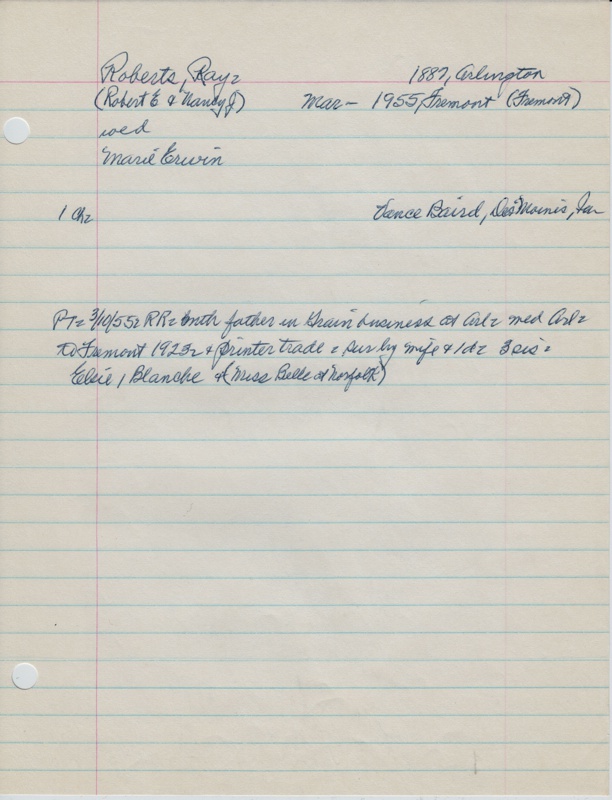 Roberts, Ray= 1887, Arlington
(Robert E & Nancy J) Mar - 1955, Fremont (Fremont)
wed
Marie Erwin
1 Ch= Vance Baird, Des Moines, Ia
PT= 3/10/55= RR= with father in Grain business at Arl= med Arl=
to Fremont 1923= & printer trade = sur by wife & 1d= 3 sis=
Elsie, Blanche & (Miss Belle at Norfolk)